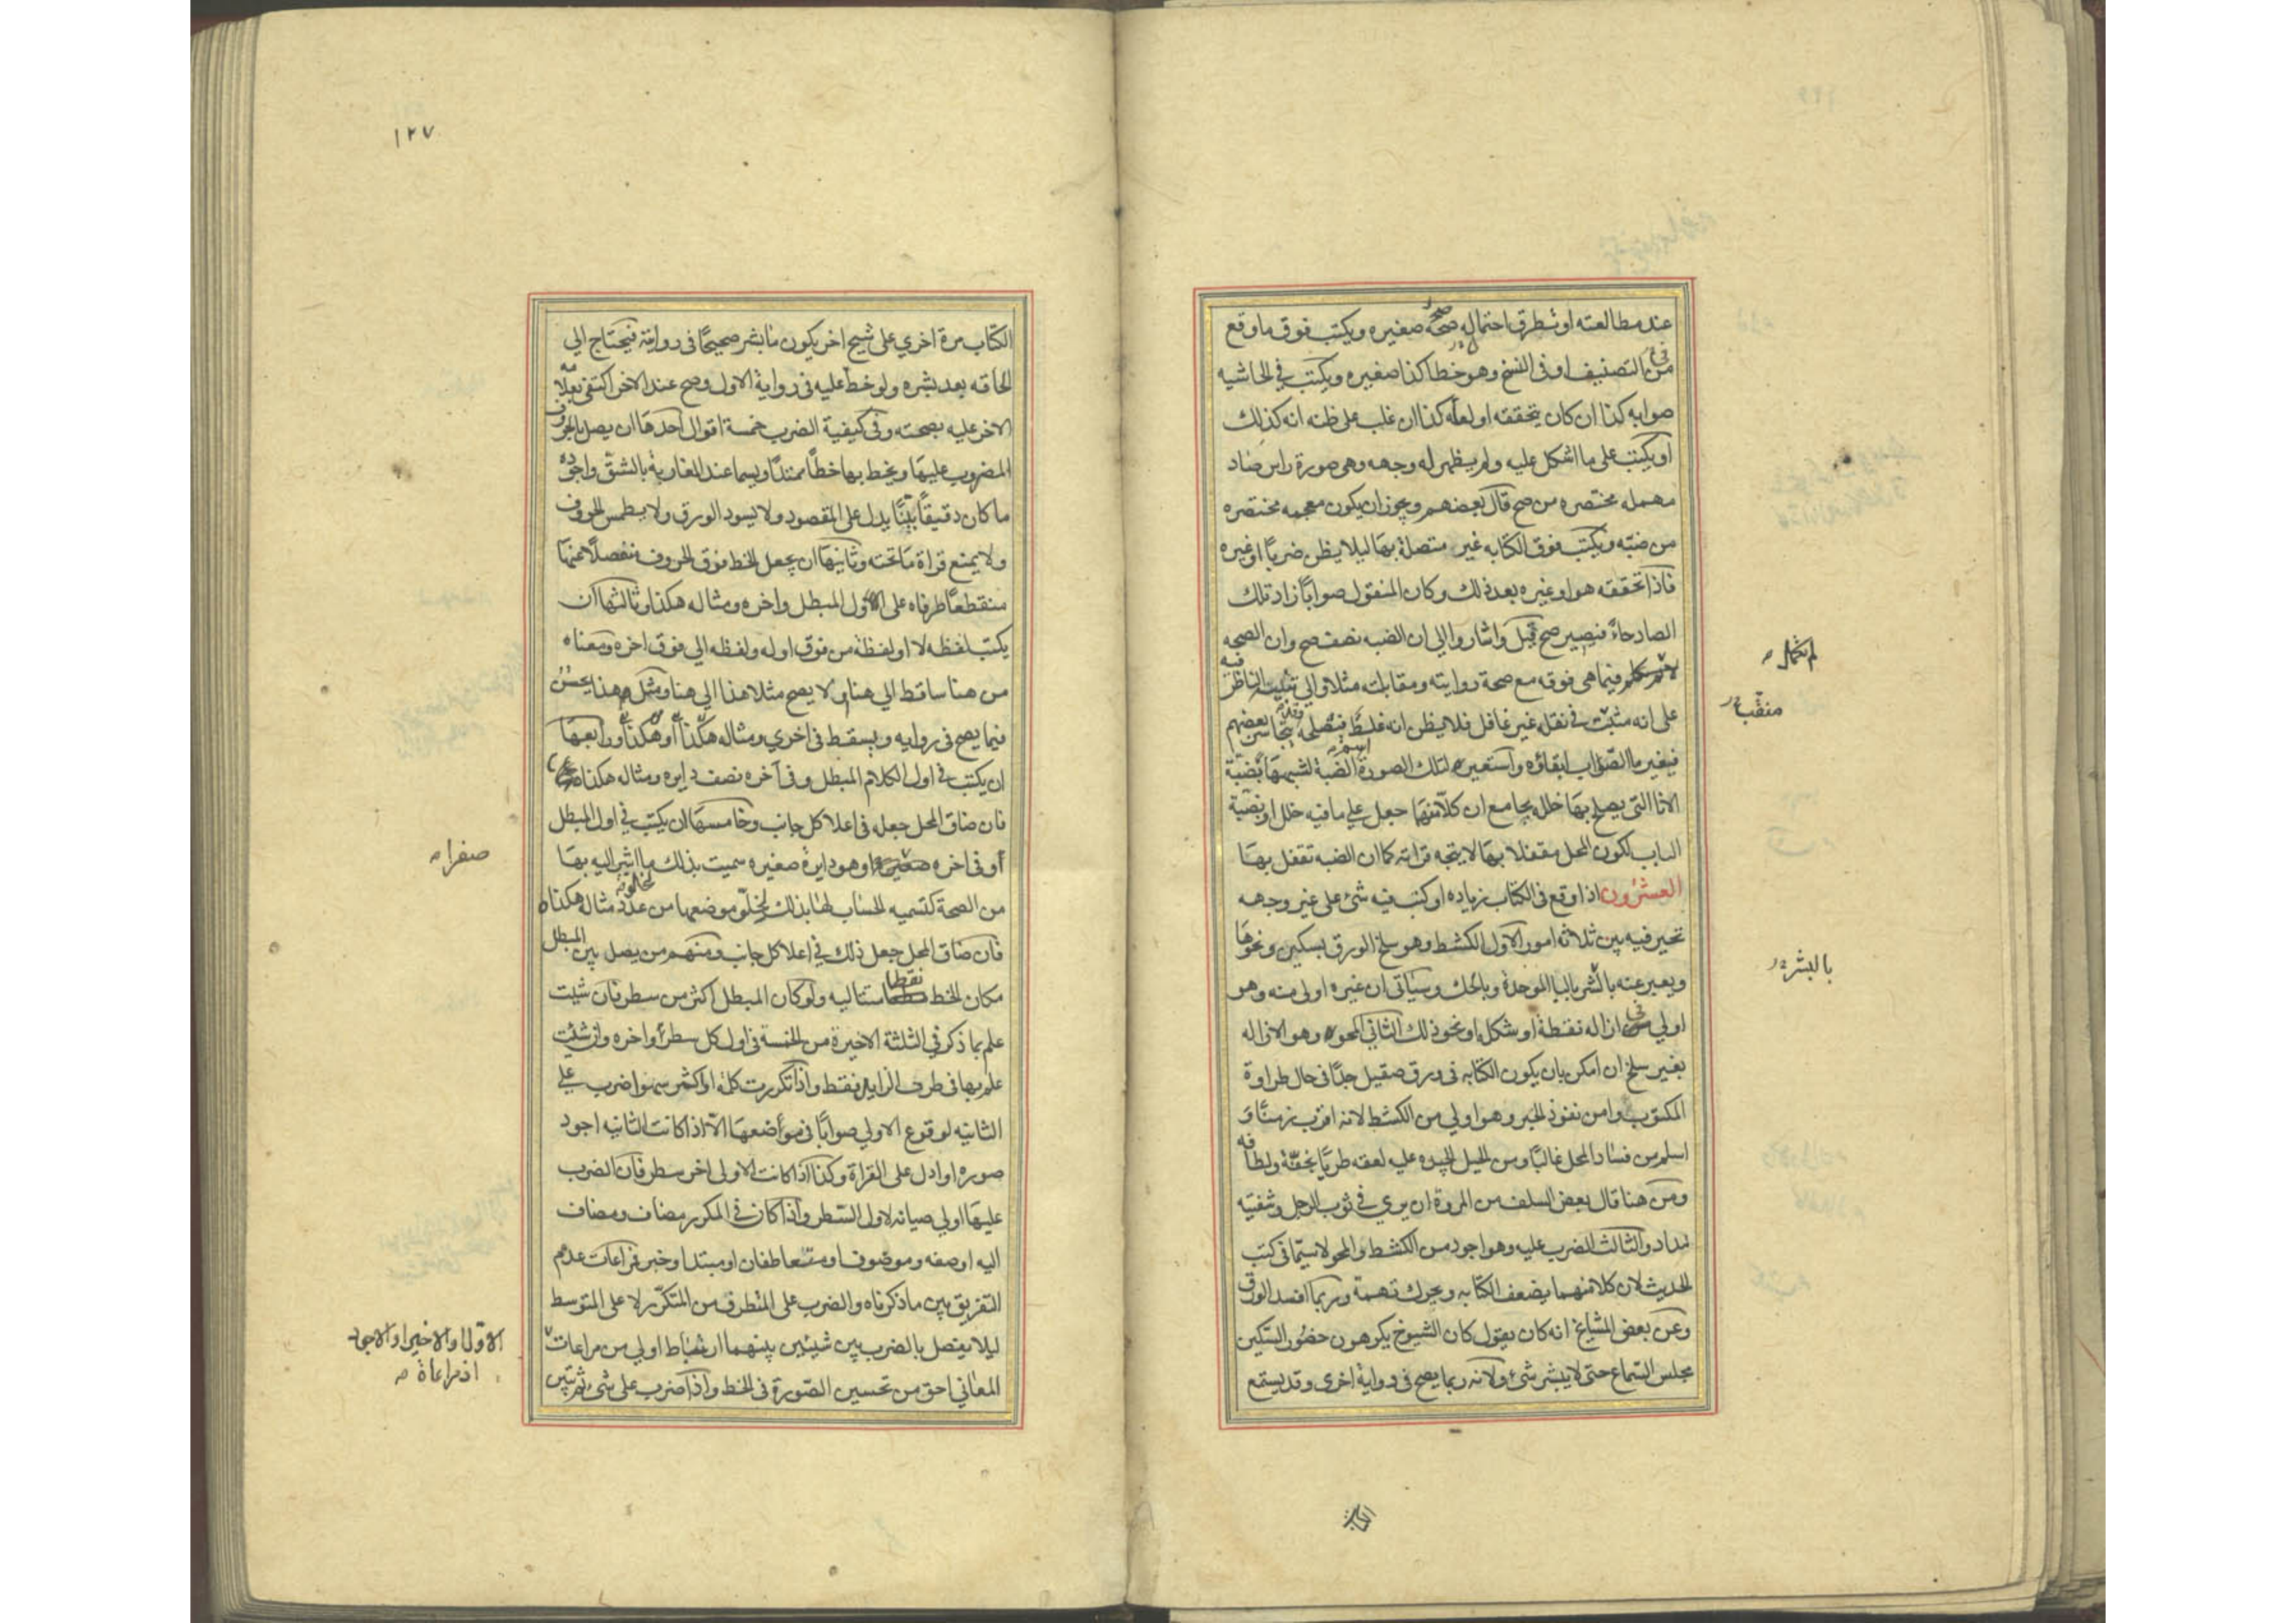 عند مطالعته او تطرق احتمال صح صغيره ويكتب فوق ما وقع
من التصنيف او فى النسخ وهو خطا كذا صغيره ويكتب في الحاشيه
صوابه كذا ان كان يتحققه او لعله كذا ان غلب على ظنه انه كذلك
او يكتب على ما اشكل عليه ولم يظهر له وجهه وهى صورة راس ضاد
مهمله مختصره من صح قال بعضهم ويجوز ان يكون معجمه مختصره
من ضبّه ويكتب فوق الكتابه غير متصلة بها ليلا يظن ضربًا او غيره
فاذا تحققه هو او غيره بعد ذلك وكان المنقول صوابًا زاد تلك
الصاد حاءً فيصير صح قيل واشاروا الي ان الضبه نصف صح وان الصحه
لم تكمل فيما هى فوقه مع صحة روايته ومقابلته مثلا والي تنبيه الناظر فيه
على انه مثبت في نقله غير غافل فلا يظن انه غلط فيصلحه وقد يتجاسر بعضهم
فيغير ما الصواب ابقاؤه واستعير لتلك الصورة اسم الضبة لشبهها بضبّة
الانا التى يصلح بها خلله بجامع ان كلًا منهما جعل علي ما فيه خلل او بضبّة
الباب لكون المحل مقفلا بها لا يتجه قراته كما ان الضبه تقفل بها
العشرون اذا وقع فى الكتاب زياده او كتب فيه شئ على غير وجهه
تخير فيه بين ثلاثه امور الاول الكشط وهو سلخ الورق بسكين ونحوها
ويعبر عنه بالبشر بالبا الموحدة وبالحك وسياتى ان غيره اولى منه وهو
اولي فى ازاله نقطة او شكله او نحو ذلك الثاني المحو وهو الازاله
بغير سلخ ان امكن بان يكون الكتابه فى ورق صقيل جدًا فى حال طراوة
المكتوب وامن نفوذ الحبر وهو اولي من الكشط لانه اقرب زمنًا و
اسلم من فساد المحل غالبًا ومن الحيل الجيده عليه لعقه طريًا بخفّة ولطافه
ومن هنا قال بعض السلف من المروة ان يري في ثوب الرجل وشفتيه
مداد والثالث الضرب عليه وهو اجود من الكشط والمحو لا سيّما فى كتب
الحديث لان كلا منهما يضعف الكتابه ويحرك تهمة وربما افسد الورق
وعن بعض المشايخ انه كان يقول كان الشيوخ يكرهون حضور السكين
مجلس السماع حتى لا يبشر شئ ولانه ربما يصح فى رواية اخرى وقد يسمع
لم تكمل صح
بالبشر
الكتاب
١٢٧
الكتاب مرة اخري على شيخ اخر يكون ما بشر صحيحًا فى روايته فيحتاج الي
الحاقه بعد بشره ولو خط عليه فى رواية الاول وصح عند الاخر اكتفى بعلامة
الاخر عليه بصحته وفى كيفية الضرب خمسة اقوال احدها ان يصل بالحروف
المضروب عليها ويخط بها خطًا ممتدًا ويسما عند المغاربة بالشق واجوده
ما كان دقيقًا بيّنًا يدل على المقصود ولا يسود الورق ولا يطمس الحروف
ولا يمنع قراة ما تحته وثانيها ان يجعل الخط فوق الحروف منفصلًا عنها
منقطعًا طرفاه على الاول المبطل واخره ومثاله هكذا وثالثها ان
يكتب لفظه لا او لفظة من فوق اوله ولفظه الي فوق اخره ومعناه
من هنا ساقط الي هنا او لا يصح مثلا هذا الي هنا ومثل هذا يحسن
فيما يصح فى روايه ويسقط فى اخري ومثاله هكذا او هكذا ورابعها
ان يكتب في اول الكلام المبطل وفى آخره نصف دايره ومثاله هكذا
فان ضاق المحل جعله فى اعلا كل جانب وخامسها ان يكتب في اول المبطل
او فى اخره وهو دايرة صغيره سميت بذلك بها
من الصحة كتسميه الحساب لها بذلك لخلو موضعها من عدد مثاله هكذا ٥
فان ضاق المحل جعل ذلك في اعلا كل جانب ومنهم من يصل بين المبطل
مكان الخط نقطا متتاليه ولو كان المبطل اكثر من سطر فان شيت
علم بما ذكر في الثلثة الاخيرة من الخمسة فى اول كل سطر واخره وان شئت
علم بها فى طرف الزايد فقط واذا تكررت كلمة او اكثر سهوا ضرب علي
الثانيه لوقوع الاولي صوابًا فى مواضعها الّا اذا كانت الثانيه اجود
صوره او ادل على القراة وكذا اذا كانت الاولى اخر سطر فان الضرب
عليها اولي صيانه لاول السّطر واذا كان في المكرر مضاف ومضاف
اليه او صفه وموصوف او متعاطفان او مبتدا وخبر فراعات عدم
التفريق بين ما ذكرناه والضرب على المتطرف من المتكرّر لا على المتوسط
ليلا يفصل بالضرب بين شيئين بينهما ارتباط اولي من مراعات
المعانى احق من تحسين الصّورة فى الخط واذا ضرب على شئ ثم تبين
صفرا صح
الاول او الاخير او الاجود
اذ مراعاة صح